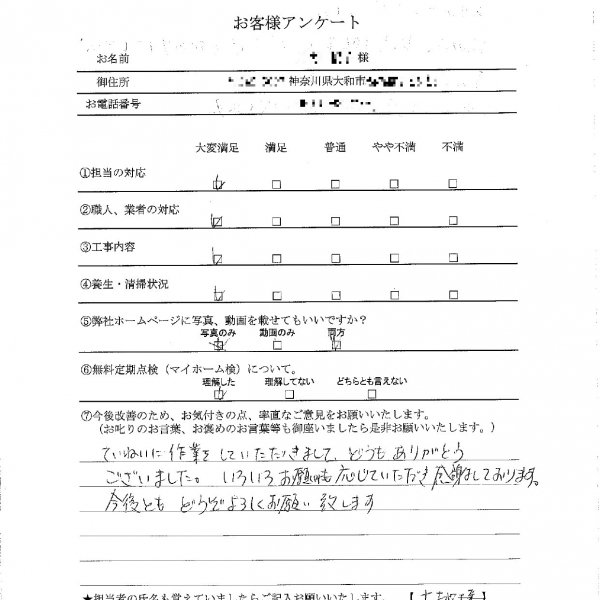 お客様アンケート
お名前 様
御住所 神奈川県大和市
お電話番号
大変満足 満足 普通 やや不満 不満
①担当の対応
②職人、業者の対応
③工事内容
④養生・清掃状況
⑤弊社ホームページに写真、動画を載せてもいいですか？
写真のみ 動画のみ 両方
⑥無料定期点検（マイホーム検）について。
理解した 理解してない どちらとも言えない
⑦今後改善のため、お気付きの点、率直なご意見をお願いいたします。
（お叱りのお言葉、お褒めのお言葉等も御座いましたら是非お願いいたします。）
ていねいに作業をしていただきまして、どうもありがとう
ございました。いろいろお願いにも応じていただき感謝しております。
今後とも どうぞよろしくお願い致します
★担当者の氏名も覚えていましたらご記入お願いいたします。【